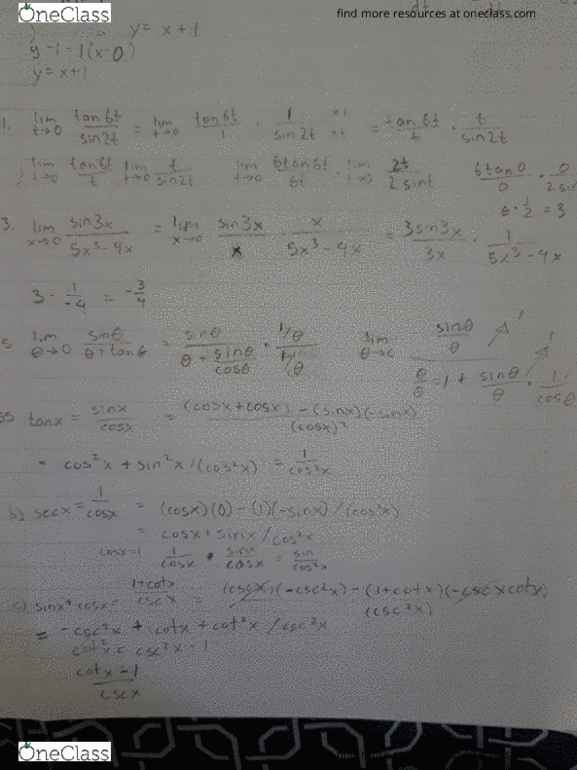 OneClass
find more resources at oneclass.com
y = x + 1
y - 1 = 1(x-0)
y = x+1
lim t→0 tan6t/sin2t = lim t→0 tan6t/1 · 1/sin2t = tan6t/t · t/sin2t
lim t→0 tan6t/t lim t→0 t/sin2t lim t→0 6tan6t/6t · lim 2t/2sint 6tan0/0
6 · 1/2 = 3
3. lim x→0 sin3x/5x³-4x = lim x→0 sin3x/x · x/5x³-4x = 3sin3x/3x · 1/5x³-4x
3 · 1/-4 = -3/4
lim θ→0 sinθ/θ+tanθ = sinθ/θ+sinθ/cosθ · 1/θ/1/θ lim sinθ/θ 1
θ/θ=1 + sinθ/θ · 1/cosθ 1
tanx = sinx/cosx = (cosx+cosx) - (sinx)(-sinx)/(cosx)²
= cos²x + sin²x/(cos²x) = 1/cos²x
b) secx = 1/cosx = (cosx)(0) - (1)(-sinx)/(cos²x)
= cosx+sinx/cos²x
cosx=1 1/cosx · sinx/cosx = sin/cos²x
c) sinx+cosx= 1+cotx/cscx = (cscx)(-csc²x) - (1+cotx)(-cscxcotx)/(csc²x)
= -csc²x + cotx + cot²x/csc²x
cot²x = csc²x - 1
cotx - 1/cscx
OneClass